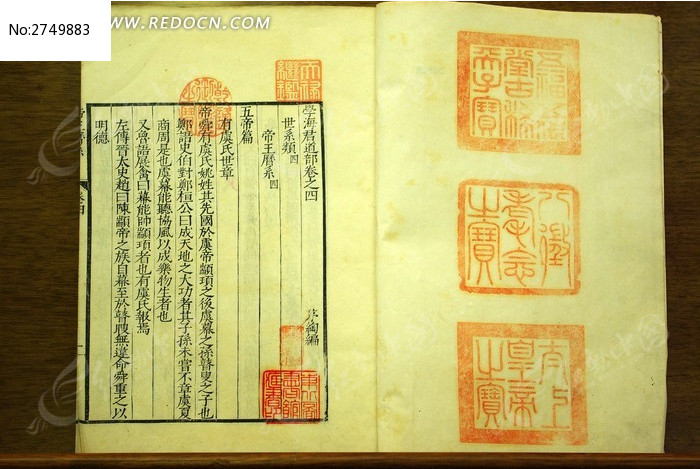 No:2749883
WWW.REDOCN.COM
五福五代堂古稀天子寶
八徵耄念之寶
太上皇帝之寶
天祿繼鑑
乾隆御覽之寶
學海君道部卷之四
世系類四
帝王曆系四
編
五帝篇
有虞氏世章
帝舜有虞氏姚姓其先國於虞帝顓頊之後虞幕之孫瞽叟之子也
鄭語史伯對鄭桓公曰成天地之大功者其子孫未嘗不章虞夏
商周是也虞幕能聽協風以成樂物生者也
又魯語展禽曰幕能帥顓頊者也有虞氏報焉
左傳晉太史趙曰陳顓帝之族自幕至於瞽瞍無違命舜重之以
明德